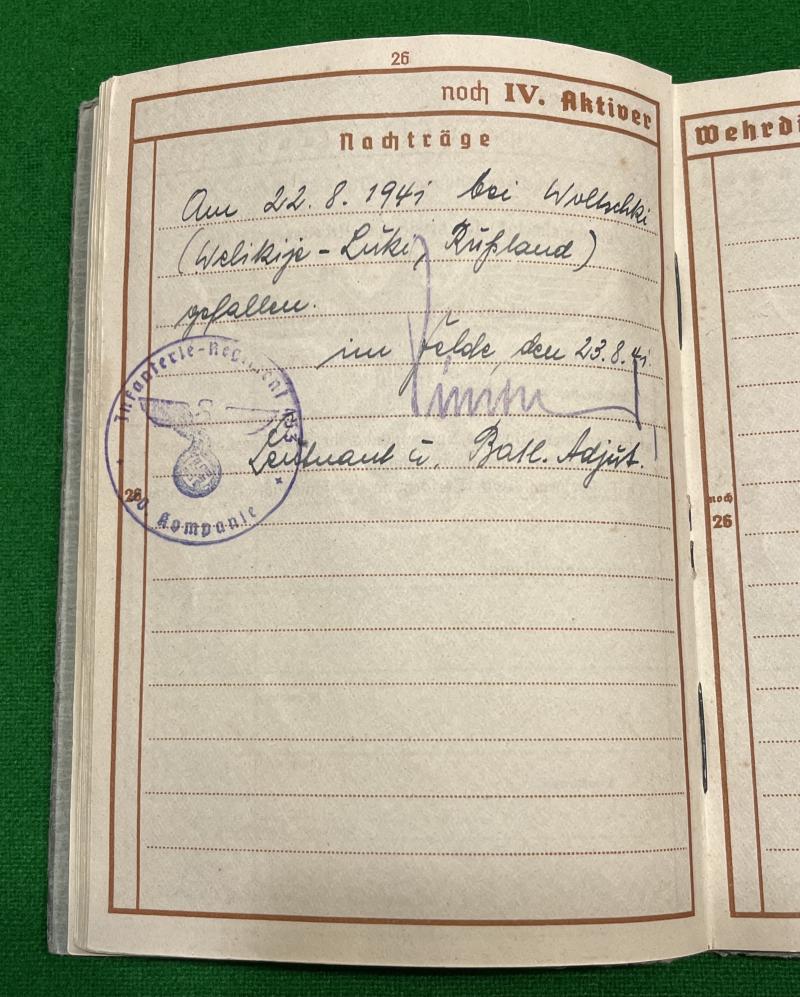 26
noch IV. Aktiver
Nachträge
Am 22. 8. 1941 bei Woltschki
(Welikije-Luki, Rußland)
gefallen.
im Felde, den 23.8.41.
Leutnant u. Batl. Adjut.
Infanterie-Regiment 453
Kompanie
26
Wehrdi
noch
26